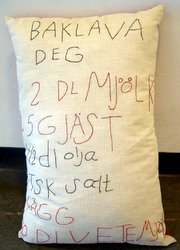 BAKLAVA
DEG
2 DL MJÖLK
5 G JÄST
dl olja
TSK salt
ÄGG
DL VETEMJÖ